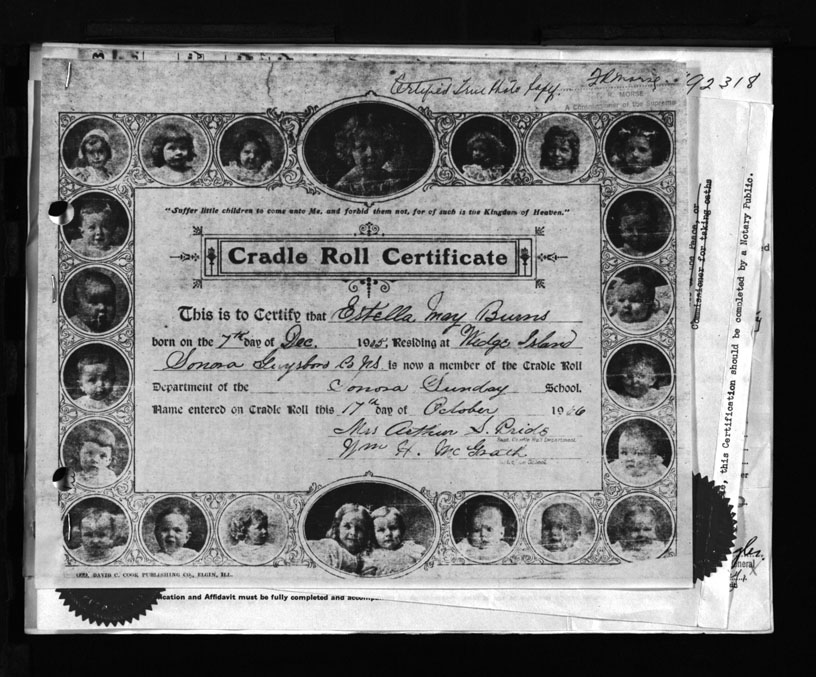 Certified True Photo Copy. 92318
MORSE
A Commissioner of the Supreme
"Suffer little children to come unto Me, and forbid them not, for of such is the Kingdom of Heaven."
Cradle Roll Certificate
This is to Certify that Estella May Burns
born on the 7th day of Dec. 1905, Residing at Wedge Island
Sonora Guysboro Co NS is now a member of the Cradle Roll
Department of the Sonora Sunday School.
Name entered on Cradle Roll this 17th day of October 1906
Mrs Arthur S. Pride
Supt. Cradle Roll Department.
Wm H. McGrath
School
DAVID C. COOK PUBLISHING CO., ELGIN, ILL.
ication and Affidavit must be fully completed and
Peace, or
Commissioner for taking oaths
, this Certification should be completed by a Notary Public.